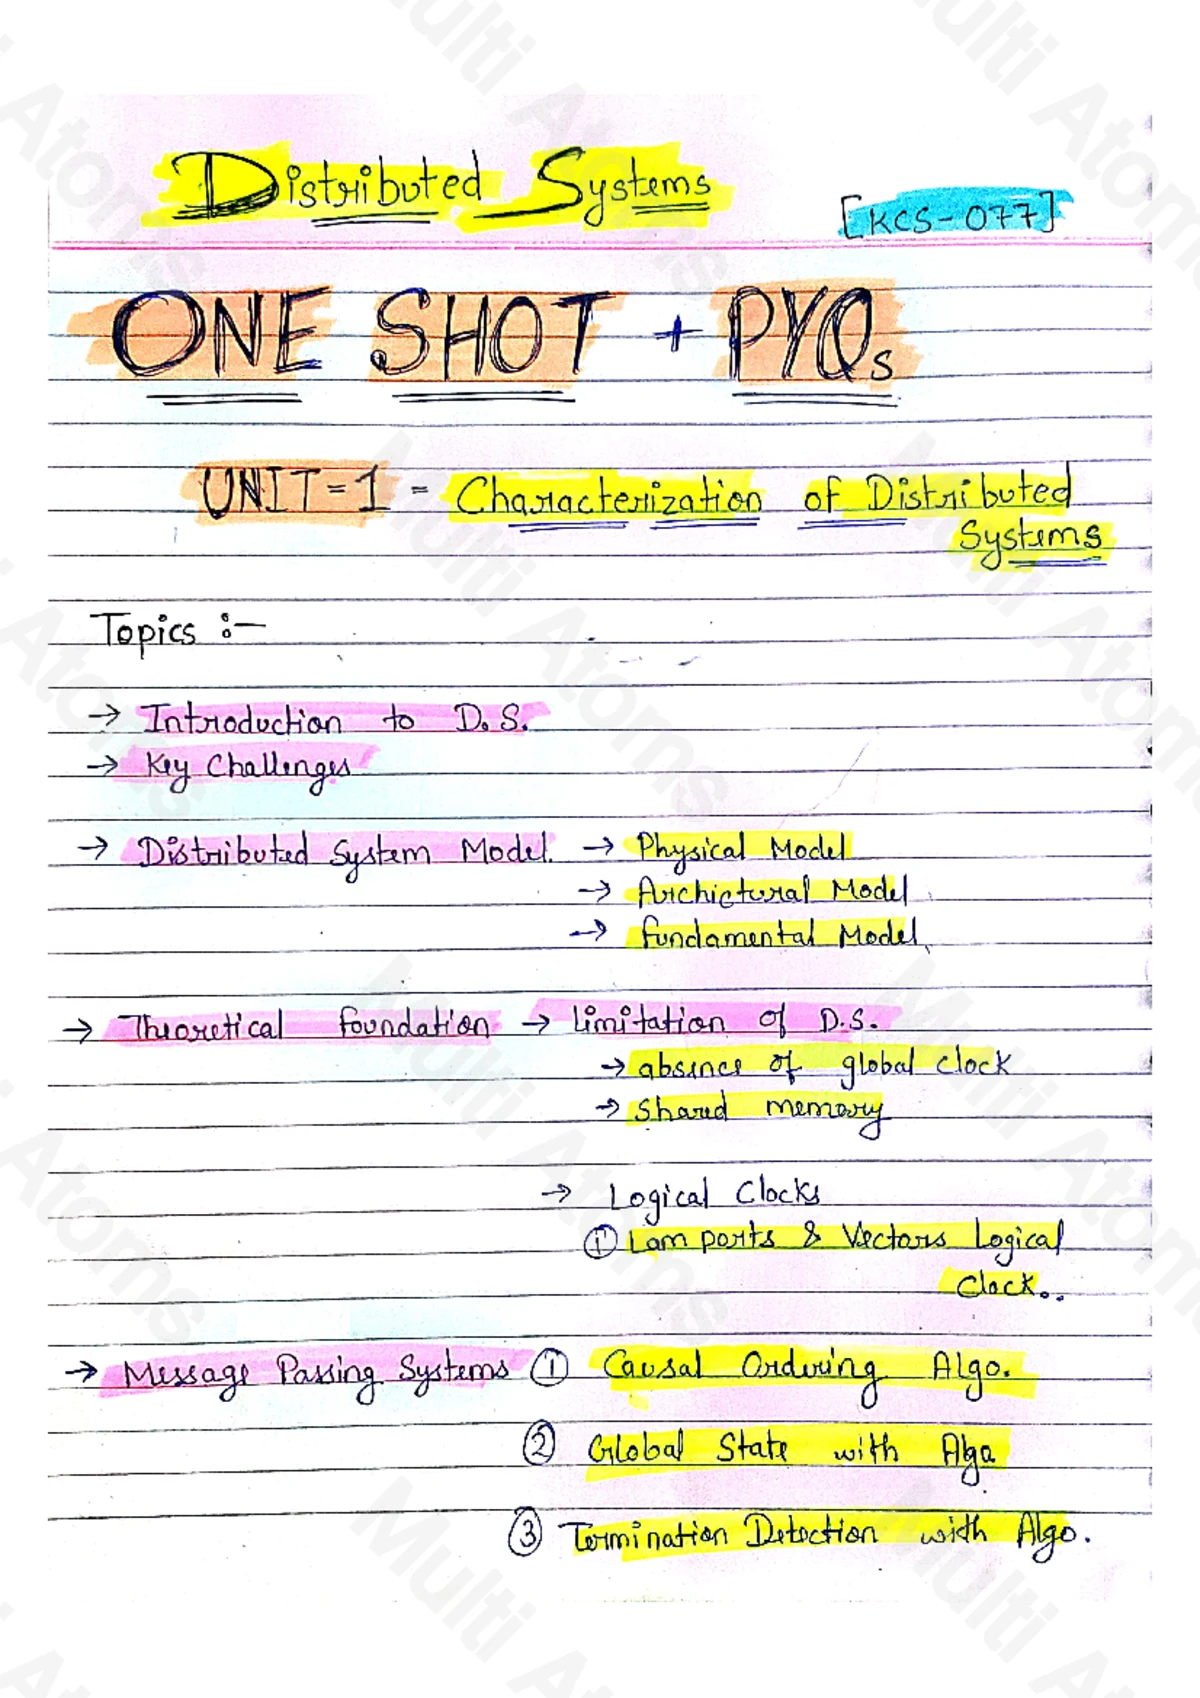 Distributed Systems
[KCS-077]
ONE SHOT + PYQs
UNIT=1 - Characterization of Distributed
Systems
Topics :-
→ Introduction to D.S.
→ Key Challenges
→ Distributed System Model. → Physical Model
→ Archictural Model
→ Fundamental Model
→ Theoretical Foundation → Limitation of D.S.
→ absence of global clock
→ Shared memory
→ Logical Clocks
① Lamports & Vectors Logical
Clock..
→ Message Passing Systems ① Causal Ordering Algo.
② Global State with Algo
③ Termination Detection with Algo.
Multi Atoms